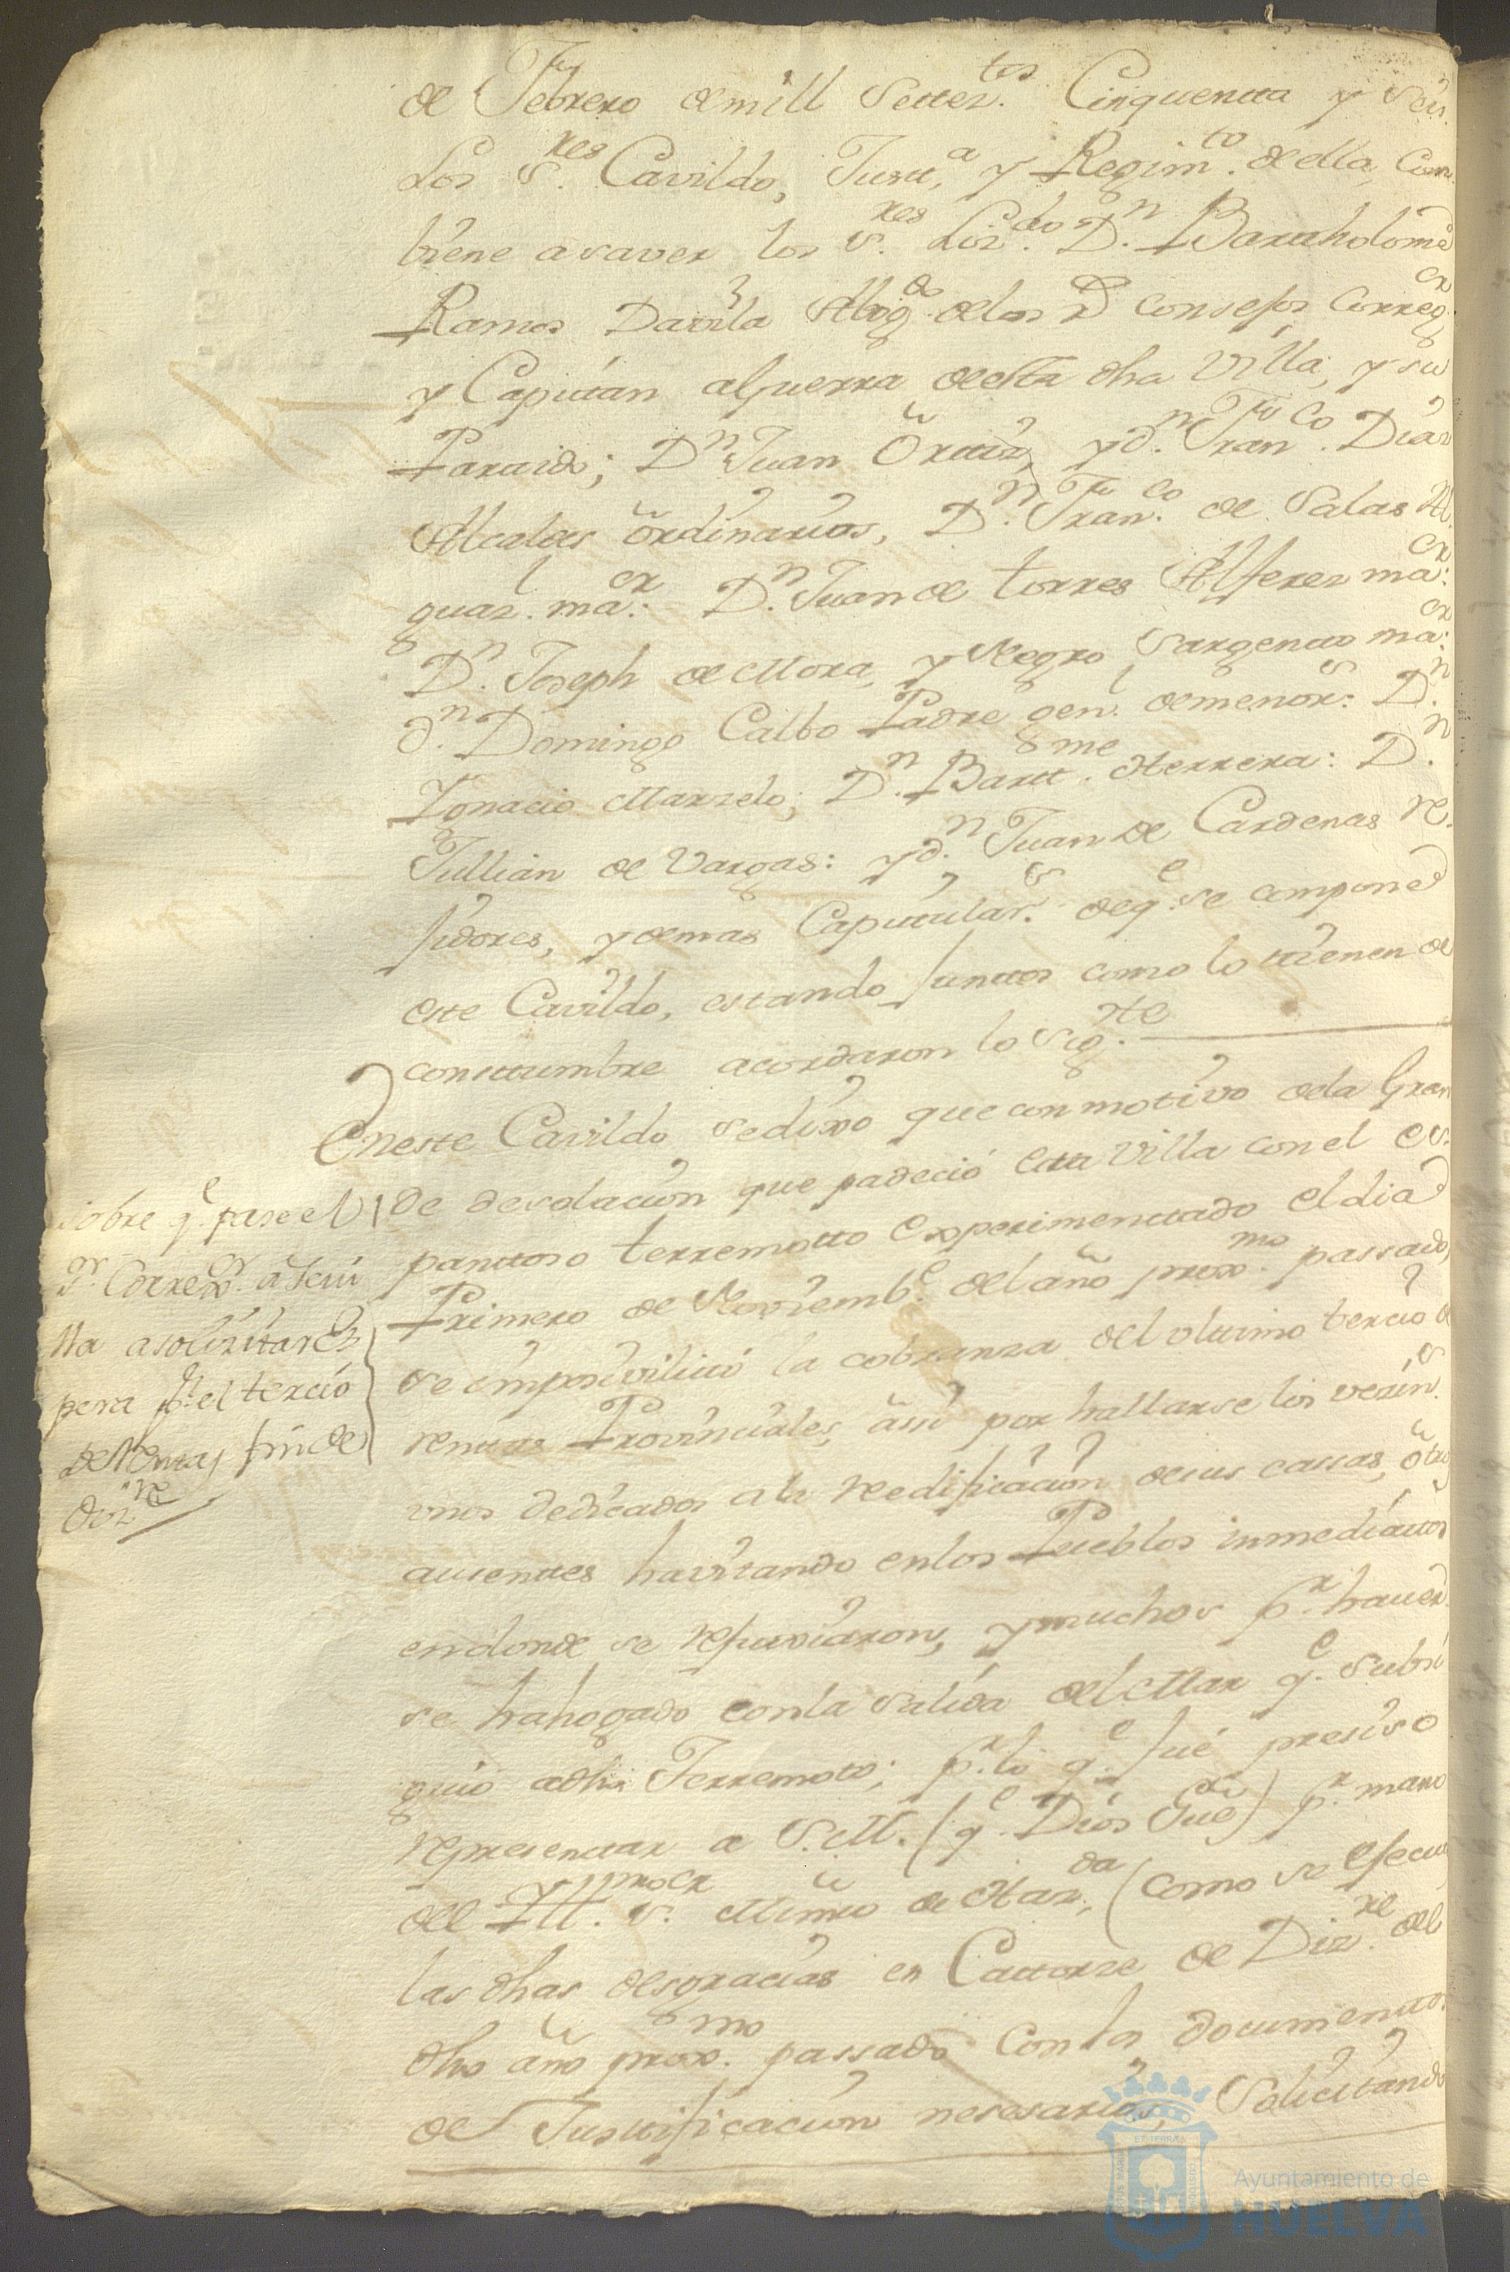 de Febrero de mill Settez.tos Cinquenta y Seis.
Los S.res Cavildo, Justt.a y Regim.to de ella, Com
biene a saver los S.res Liz.do D.n Bartholome
Ramos Davila Abog.do de los R.s Consejos Correg.or
y Capitan a Guerra de esta dha Villa, y su
Partido; D.n Juan Orttiz, y d.n Fran.co Diaz
Alcaldes ordinarios, D.n Fran.co de Salas Al
guaz.l ma.or D.n Juan de torres Alferez ma.or
D.n Joseph de Mora, y Negro Sargentto ma.or
d.n Domingo Calbo Padre gen.l de menor.s D.n
Ignacio Marzelo; D.n Bartt.me Herrera: D.n
Jullian de Vargas: y d.n Juan de Cardenas Re
jidores, y demas Capitular.s de q.e se compone
este Cavildo, estando juntos como lo tienen de
consttumbre acordaron lo sig.te
En este Cavildo se dixo que con motivo de la Gran
de desolacion que padeció esta Villa con el es
panttoso terremotto experimenttado el dia
Primero de Noviemb.e del año prox.mo passado,
se imposivilitó la cobranza del ultimo tercio de
renttas Provinciales, assi por hallarse los vezin.s
unos dedicados a la reedificacion de sus cassas, otros
ausenttes havitando en los Pueblos inmediatos
en donde se refujiaron, y muchos p.r haver
se hahogado con la salida del Mar q.e subsi
guió a dho Terremoto; p.r lo q.e fué presiso
representtar a S.M. (q.e Dios Gue) p.r mano
del Ill.mo S.or Minro de Haz.da (como se efecuto
las dhas desgracias en Cattorze de Diz.re del
dho año prox.mo passado con los documenttos
de Justtificacion nesesarios, Solicitando
sobre q.e pase el
S.or Correx.or a Sevi
lla a solizitar Es
pera p.r el tercio
de Rentas fin de
Diz.re
ET TERRÆ
Ayuntamiento de
HUELVA